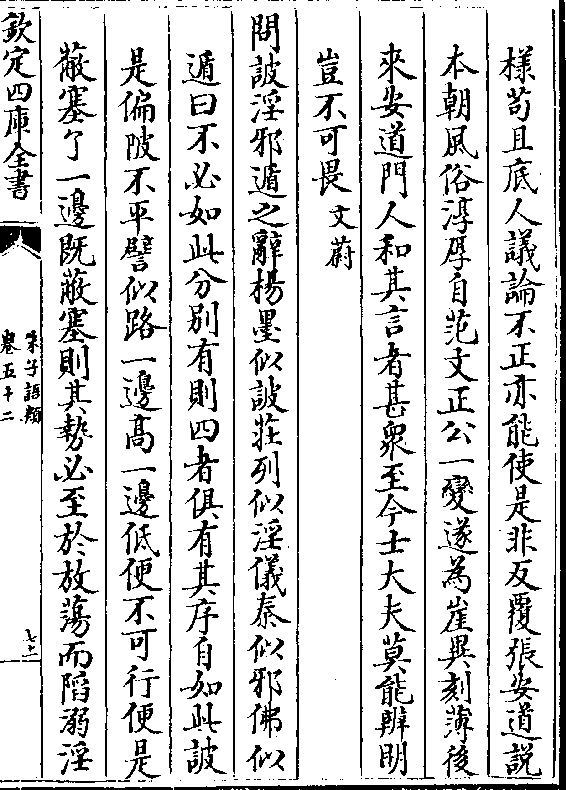 様苟且底人議論不正亦能使是非反覆張安道説
本朝風俗淳厚自范文正公一變遂為崖異刻薄後
來安道門人和其言者甚衆至今士大夫莫能辨明
豈不可畏 文蔚
問詖淫邪遁之辭楊墨似詖莊列似淫儀秦似邪佛似
遁曰不必如此分别有則四者俱有其序自如此詖
是偏陂不平譬似路一邊髙一邊低便不可行便是
蔽塞了一邊既蔽塞則其勢必至於放蕩而陷溺淫
欽定四庫全書
朱子語類
卷五十二